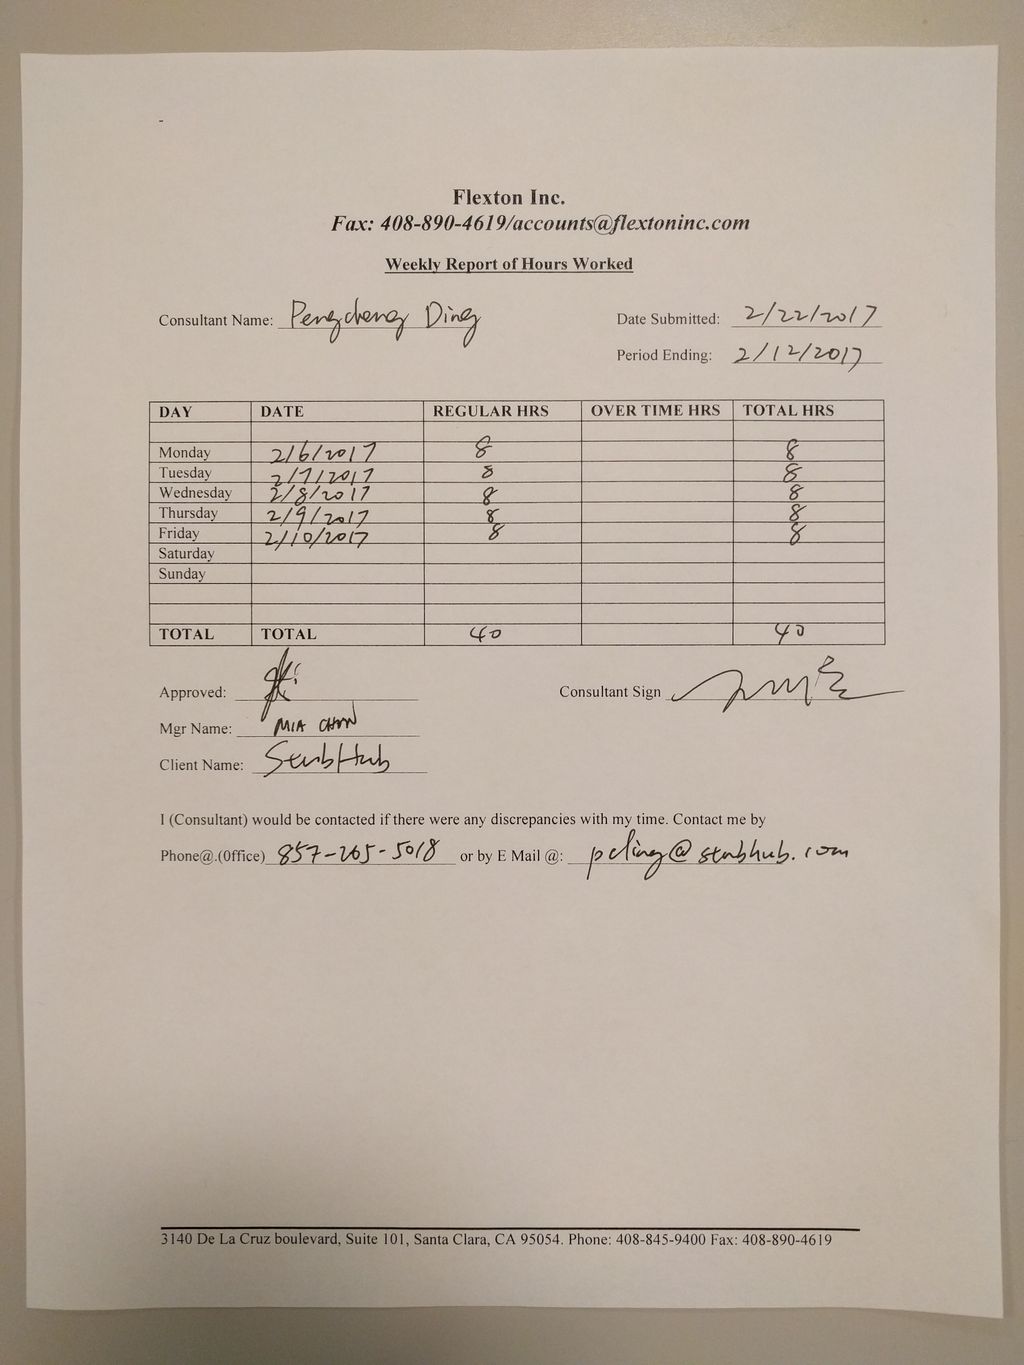 Flexton Inc.
Fax: 408-890-4619/accounts@flextoninc.com
Weekly Report of Hours Worked
Consultant Name: Pengcheng Ding Date Submitted: 2/22/2017
Period Ending: 2/12/2017
DAY DATE REGULAR HRS OVER TIME HRS TOTAL HRS
Monday 2/6/2017 8 8
Tuesday 2/7/2017 8 8
Wednesday 2/8/2017 8 8
Thursday 2/9/2017 8 8
Friday 2/10/2017 8 8
Saturday
Sunday
TOTAL TOTAL 40 40
Approved: Consultant Sign
Mgr Name: MIA
Client Name: StubHub
I (Consultant) would be contacted if there were any discrepancies with my time. Contact me by
Phone@.(Office) 857-265-5018 or by E Mail @: pding@stubhub.com
3140 De La Cruz boulevard, Suite 101, Santa Clara, CA 95054. Phone: 408-845-9400 Fax: 408-890-4619